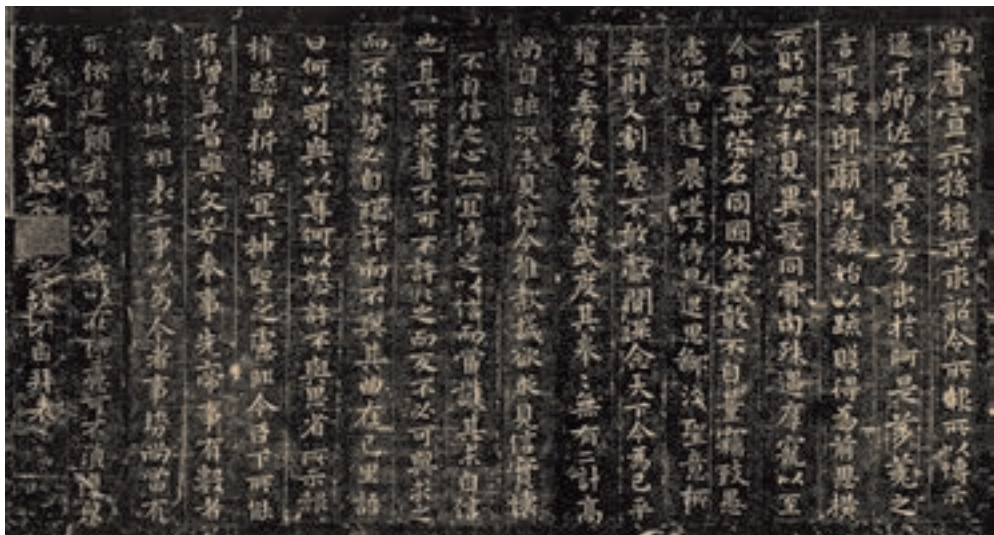 尚書宣示孫權所求詔令所報所以博示
逮于卿佐必冀良方出於阿是芻蕘之
言可擇郎廟況繇始以疏賤得為前恩橫
所盱睨公私見異愛同骨肉殊遇厚寵以至
今日再世榮名同國休慼敢不自量竊致愚
慮仍日達晨坐以待旦退思鄙淺聖意所
棄則又割意不敢獻聞深念天下今為已平
權之委質外震神武度其拳拳無有二計高
尚自疏況未見信今推款誠欲求見信實懷
不自信之心亦宜待之以信而當護其未自信
也其所求者不可不許許之而反不必可與求之
而不許勢必自絕許而不與其曲在己里語
曰何以罰與以奪何以怒許不與思省所示報
權疏曲折得宜神聖之慮非今臣下所能
有增益昔與文若奉事先帝事有數者
有似於此粗表二事以為今者事勢尚當有
所依違願君思省若以在所慮可不須復
節度唯君恐不可采故不自拜表